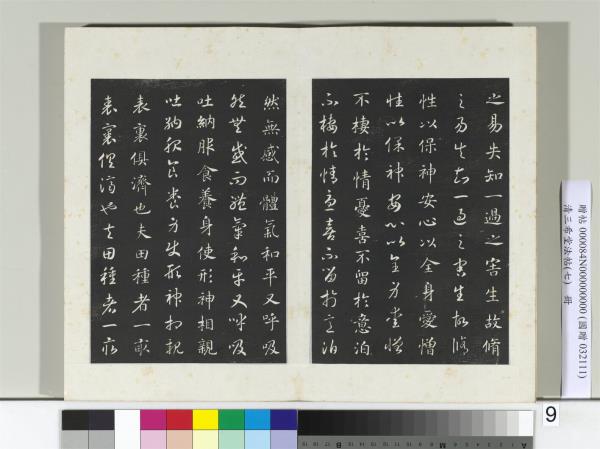 之易失知一過之害生故脩
之易失知一過之害生故脩
性以保神安心以全身愛憎
性以保神安心以全身愛憎
不棲於情憂喜不留於意泊
不棲於情憂喜不留於意泊
然無感而體氣和平又呼吸
然無感而體氣和平又呼吸
吐納服食養身使形神相親
吐納服食養身使形神相親
表裏俱濟也夫田種者一畝
表裏俱濟也夫田種者一畝
贈帖 000084N000000000 (國贈 032111)
清三希堂法帖(七) 冊
9